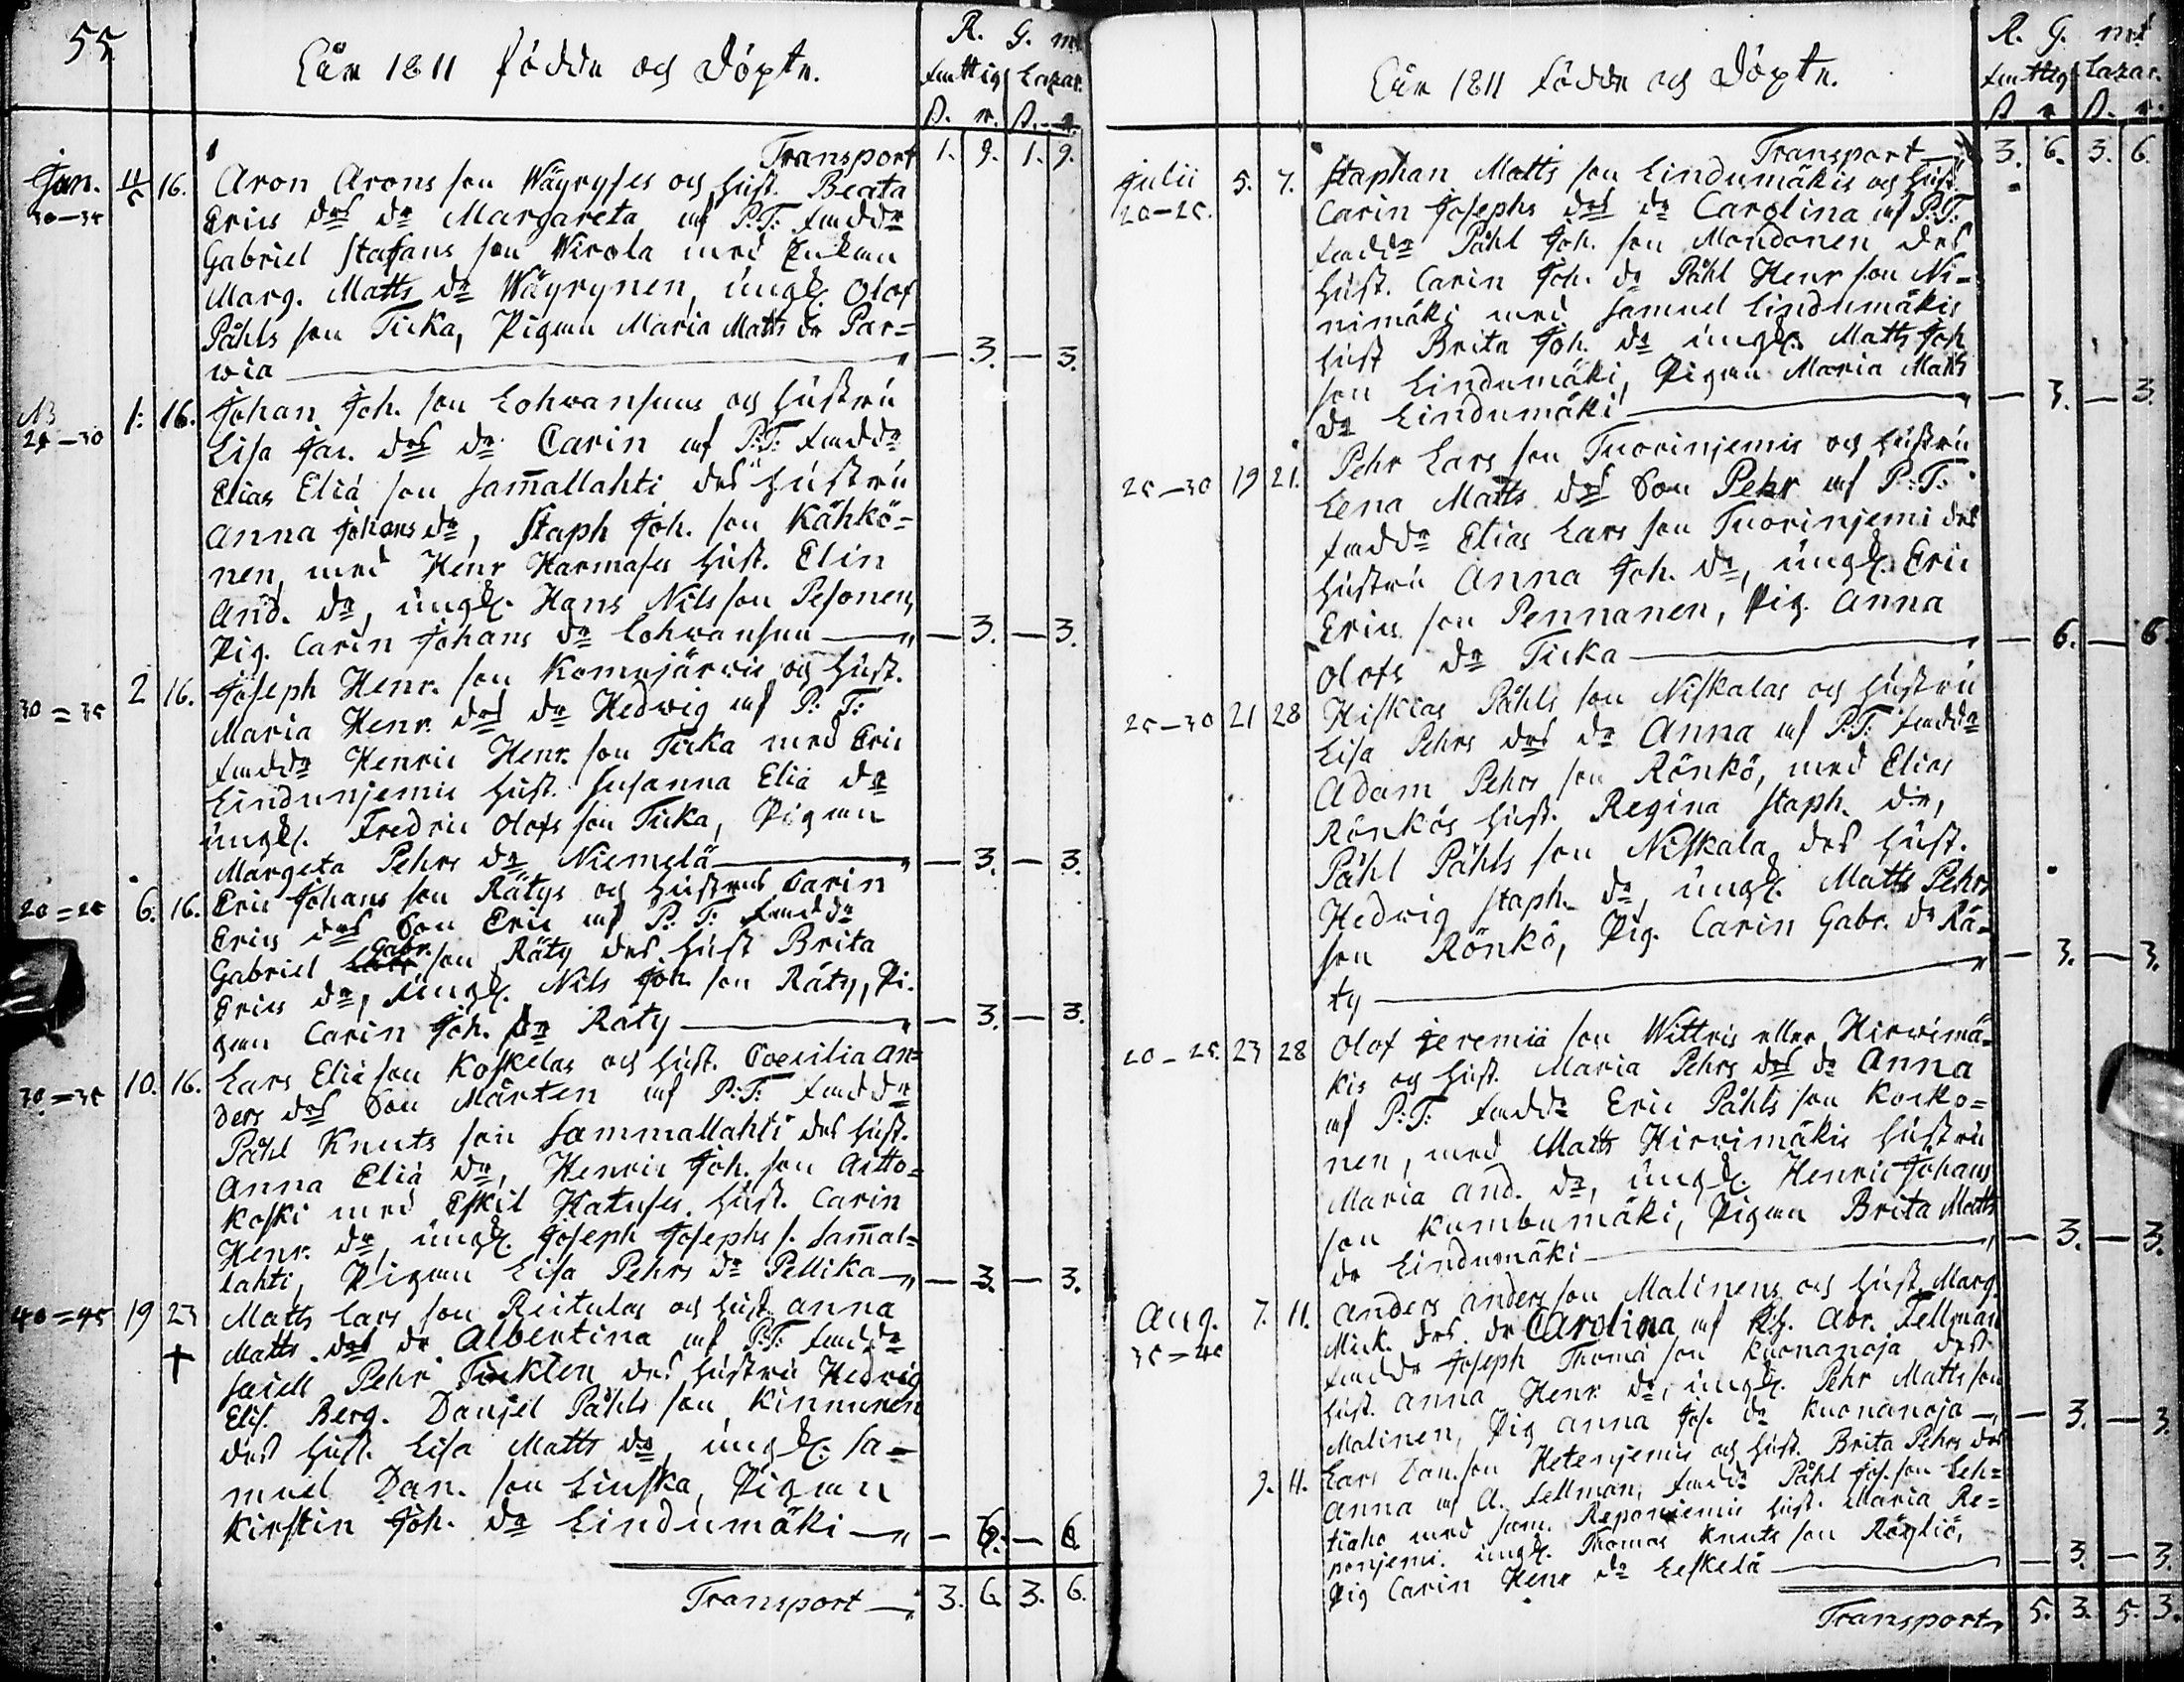 55
Åhr 1811 födde och döpte.
R. G. mt
fattig Lazar.
ß. r. ß. r.
Transport 1. 9. 1. 9.
Jan. 30-35 16. Aron Arons son Wäyryses och hust. Beata
Erics des dr Margareta af P.T. fadde
Gabriel Stafans son Wirola med Enkan
Marg. Matts dr Wäyrynen, ungk. Olof
Påhls son Ticka, Pigan Maria Matts dr Par=
wia — 3. — 3.
24-30 1: 16. Johan Joh. son Lohwansuus och hustru
Lisa Jac. des dr Carin af P:T: fadde
Elias Eliä son Sam̅allahti des hustru
Anna Johans dr, Staph Joh. son Kähkö=
nen, med Henr Harmases hust. Elin
And. dr, ungk. Hans Nils son Pesonen,
Pig. Carin Johans dr Lohwansuu — 3. — 3.
30=35 2 16. Joseph Henr. son Komujärwis och hust.
Maria Henr. des dr Hedwig af P: T:
fadde Henric Henr. son Ticka med Eric
Lindunjemis hust. Susanna Eliä dr
ungk. Fredric Olofs son Ticka, Pigan
Margeta Pehrs dr Niemelä — 3. — 3.
20=25 6. 16. Eric Johans son Rätys och hustrus Carin
Erics des Son Eric af P. T: fadde
Gabriel Gabr. son Räty des hust Brita
Erics dr, ungk. Nils Joh. son Räty, Pi.
gan Carin Joh. dr Räty — 3. — 3.
30=35 10. 16. Lars Eliä son Koskelas och hust. Coecilia An=
ders des Son Mårten af P:T: fadde
Påhl Knuts son Sammallahti des hust.
Anna Eliä dr, Henric Joh. son Aitto=
koski med Eskil Hatuses hust. Carin
Henr. dr, ungk. Joseph Josephs s. Sam̅al=
lahti, Pigan Lisa Pehrs dr Pellika — 3. — 3.
40=45 19 23 Matts Lars son Riitulas och hust. Anna
† Matts des dr Albertina af P:T. fadde
Pehr Ticklen des hustru Hedwig
Elis. Berg. Danjel Påhls son Kinnunen
des hust. Lisa Matts dr, ungk. Sa=
muel Dan. son Liuska, Pigan
Kirstin Joh. dr Lindumäki — 6. — 6.
Transport — 3. 6. 3. 6.
Åhr 1811 födde och döpte.
R. G. mt
fattig Lazar.
ß r ß. r.
Transport — 3. 6. 3. 6.
Julii 20-25. 5. 7. Staphan Matts son Lindumäkis och hust
Carin Josephs des dr Carolina af P:T:
fadde Påhl Joh. son Mondonen des
hust. Carin Joh. dr Påhl Henr son Ni=
nimäki med Samuel Lindumäkis
hust Brita Joh. dr ungk. Matts Joh
son Lindumäki, Pigan Maria Matts
dr Lindumäki — 3. — 3.
25-30 19 21. Pehr Lars son Tuorinjemis och hustru
Lena Matts des Son Pehr af P:T:
fadde Elias Lars son Tuorinjemi des
hustru Anna Joh. dr, ungk. Eric
Erics son Pennanen, Pig. Anna
Olofs dr Ticka — 6. — 6.
25-30 21 28 Hiskias Påhls son Niskalas och hustru
Lisa Pehrs des dr Anna af P.T: fadde
Adam Pehrs son Rönkö, med Elias
Rönkös hust. Regina Staph. dr,
Påhl Påhls son Niskala des hust.
Hedwig Staph. dr, ungk. Matts Pehrs
son Rönkö, Pig. Carin Gabr. dr Rä=
ty — 3. — 3.
20-25 23 28 Olof Jeremiä son Wittris eller Hirwimä=
kis och hust. Maria Pehrs des dr Anna
af P:T: fadde Eric Påhls son Korko=
nen, med Matts Hirwimäkis hustru
Maria And. dr, ungk. Henric Johans
son Kumbumäki, Pigan Brita Matts
dr Lindumäki — 3. — 3.
Aug. 35=40 7. 11. Anders Anders son Malinens och hust Marg.
Mick. des dr Carolina af Abr. Fellman
fadde Joseph Thomä son Kuonanoja des
hust. Anna Henr dr, ungk. Pehr Matts son
Malinen, Pig Anna Jos. dr Kuonanoja — 3. — 3.
9. 11. Lars Dan. son Hetenjemis och hust. Brita Pehrs des
Anna af A. Fellman, fadde Påhl Jos. son Leh=
tiaho med Sam. Reponjemis hust. Maria Re=
ponjemi. ungk. Thomas Knuts son Röyliö,
Pig Carin Henr dr Leskelä — 3. — 3.
Transport 5. 3. 5. 3.